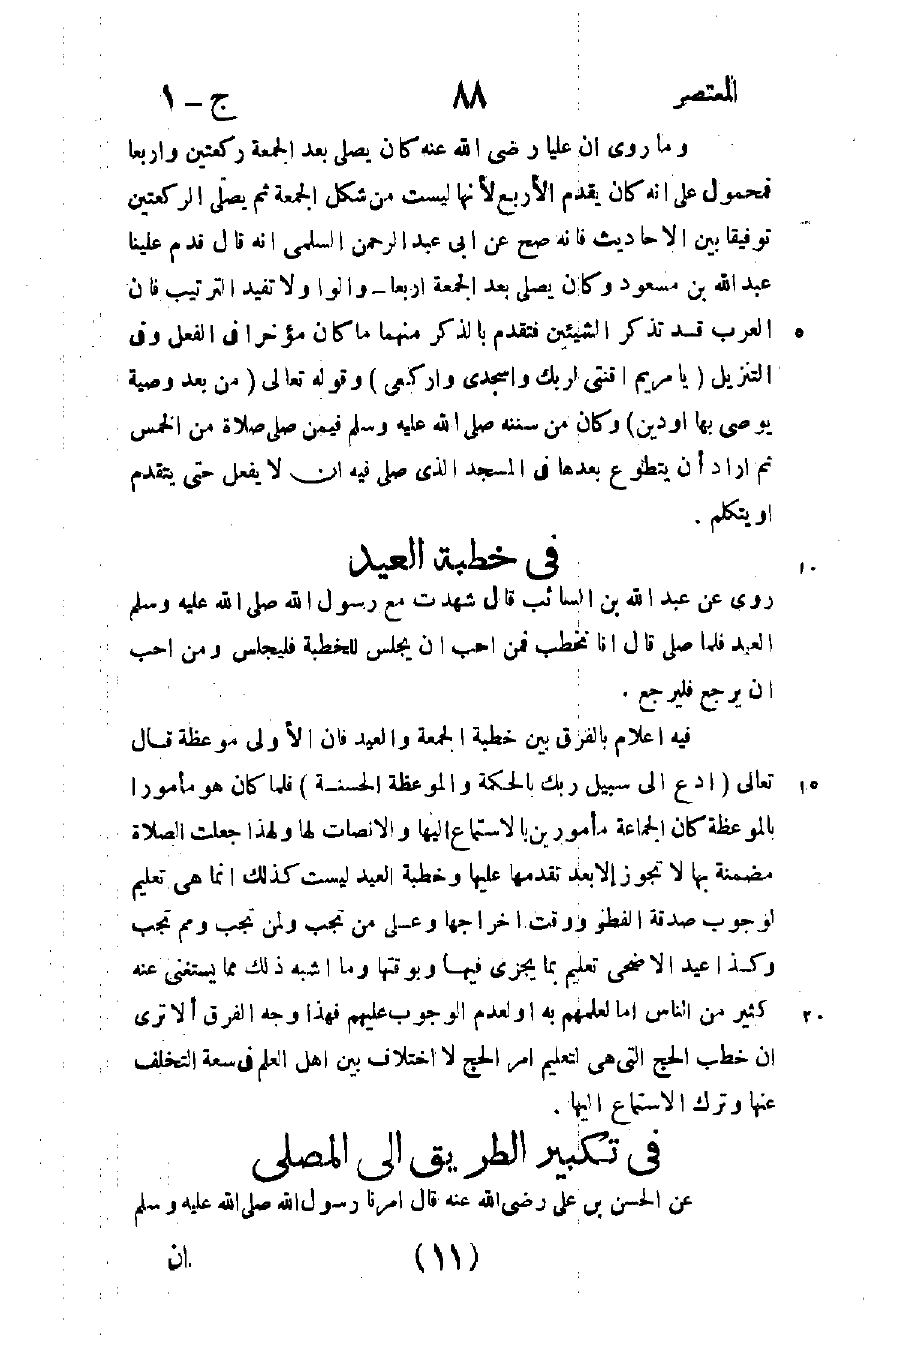 المعتصر ٨٨ ج - ١
وما روى ان عليا رضى الله عنه كان يصلى بعد الجمعة ركعتين واربعا
فمحمول على انه كان يقدم الأربع لأنها ليست من شكل الجمعة ثم يصلّى الركعتين
توفيقا بين الاحاديث فانه صح عن ابى عبد الرحمن السلمى انه قال قدم علينا
عبد الله بن مسعود وكان يصلى بعد الجمعة اربعا - والواو لا تفيد الترتيب فان
العرب قد تذكر الشيئين فتقدم بالذكر منهما ما كان مؤخرا فى الفعل وفى ٥
التنزيل ( يا مريم اقنتى لربك واسجدى واركعى ) وقوله تعالى ( من بعد وصية
يوصى بها اودين) وكان من سننه صلى الله عليه وسلم فيمن صلى صلاة من الخمس
ثم اراد أن يتطوع بعدها فى المسجد الذى صلى فيه ان لا يفعل حتى يتقدم
او يتكلم .
فى خطبة العيد ١٠
روى عن عبد الله بن السائب قال شهدت مع رسول الله صلى الله عليه وسلم
العيد فلما صلى قال انا نخطب فمن احب ان يجلس للخطبة فليجلس ومن احب
ان يرجع فليرجع .
فيه اعلام بالفرق بين خطبة الجمعة والعيد فان الأولى موعظة قال
تعالى ( ادع الى سبيل ربك بالحكمة والموعظة الحسنة ) فلما كان هو مأمورا ١٥
بالموعظة كان الجماعة مأمورين بالاستماع اليها والانصات لها ولهذا جعلت الصلاة
مضمنة بها لا تجوز إلا بعد تقدمها عليها وخطبة العيد ليست كذلك انما هى تعليم
لوجوب صدقة الفطر ووقت اخراجها وعلى من تجب ولمن تجب ومم تجب
وكذا عيد الاضحى تعليم بما يجزى فيها وبوقتها وما اشبه ذلك مما يستغنى عنه
كثير من الناس اما لعلمهم به او لعدم الوجوب عليهم فهذا وجه الفرق ألا ترى ٢٠
ان خطب الحج التى هى لتعليم امر الحج لا اختلاف بين اهل العلم فى سعة التخلف
عنها وترك الاستماع اليها .
فى تكبير الطريق الى المصلى
عن الحسن بن على رضى الله عنه قال امرنا رسول الله صلى الله عليه وسلم
(١١) ان